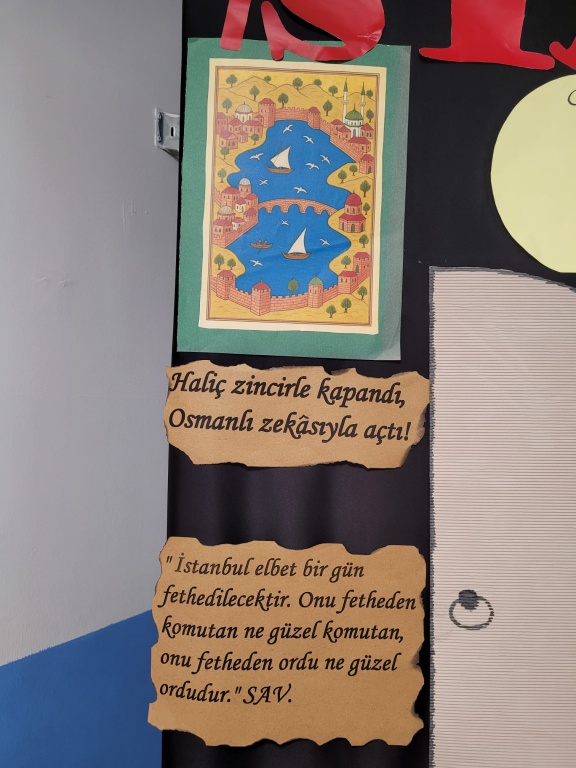 Haliç zincirle kapandı,
Osmanlı zekâsıyla açtı!
"İstanbul elbet bir gün
fethedilecektir. Onu fetheden
komutan ne güzel komutan,
onu fetheden ordu ne güzel
ordudur." SAV.